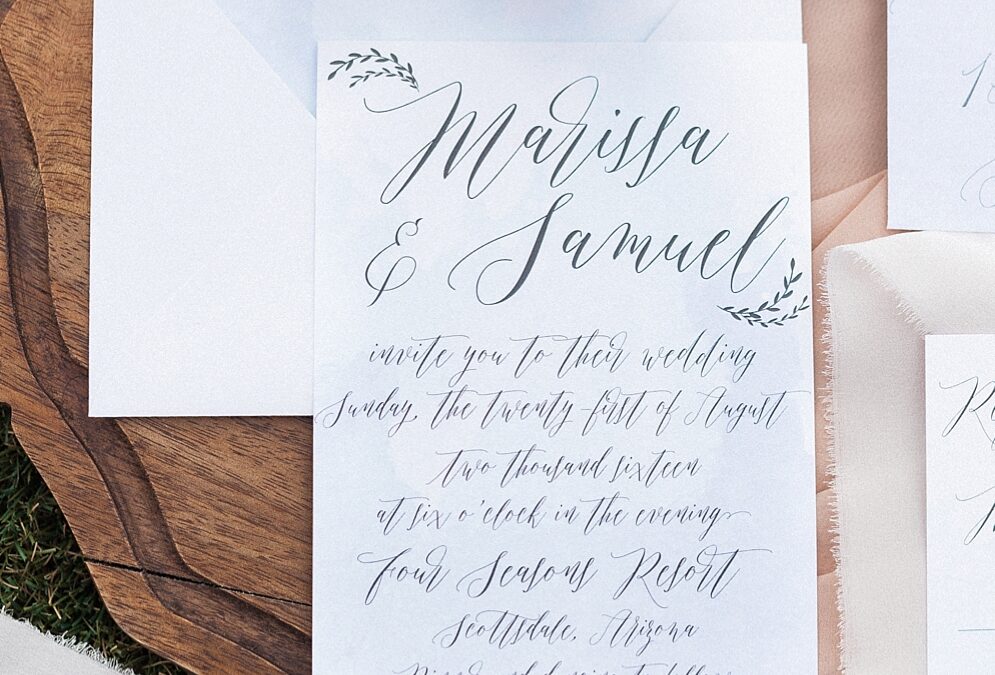 Marissa
& Samuel
invite you to their wedding
Sunday, the twenty-first of August
two thousand sixteen
at six o'clock in the evening
Four Seasons Resort
Scottsdale, Arizona